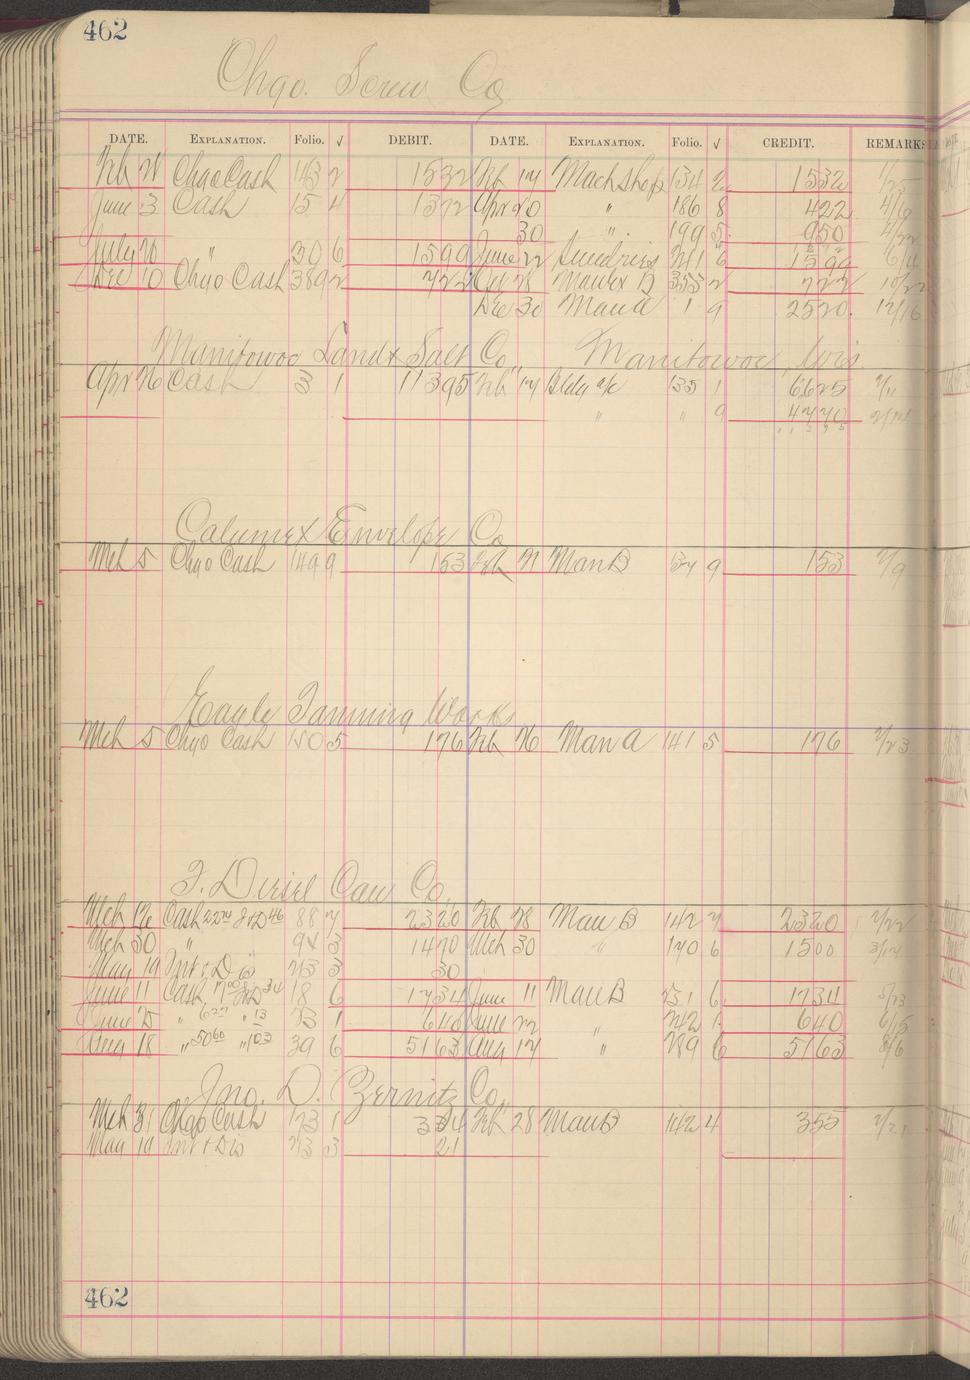 462
Chgo. Screw Co
DATE. EXPLANATION. Folio. √ DEBIT. DATE. EXPLANATION. Folio. √ CREDIT. REMARKS
Feb 21 Chgo Cash 143 2 1532 Feb 17 Mach Shop 134 2 1532 1/25
June 3 Cash 15 4 1372 Apr 20 " 186 8 422 4/19
30 " 199 5 950 4/22
July 20 " 30 6 1599 June 22 Sundries 241 6 1599 6/4
Dec 10 Chgo Cash 389 2 722 Oct 28 Manex B 353 2 722 10/22
Dec 30 Man A 1 9 2520 12/16
Manitowoc Land & Salt Co. Manitowoc, Wis.
Apr 26 Cash 3 1 11395 Feb 17 Bldg a/c 135 1 6625 2/11
" " 9 4770 2/14
Calumet Envelope Co
Mch 5 Chgo Cash 149 9 153 Feb 21 Man B 137 9 153 2/9
Eagle Tanning Works
Mch 5 Chgo Cash 150 5 176 Feb 26 Man A 141 5 176 2/23
F. Diesel Can Co.
Mch 12 Cash 2274 I&D 46 88 7 2320 Feb 28 Man B 142 7 2320 2/22
Mch 30 " 94 3 1470 Mch 30 " 170 6 1500 3/17
May 19 Int & Dis 23 3 30
June 11 Cash, 1700 I&D 34 18 6 1734 June 11 Man B 231 6 1734 5/23
June 25 " 627 " 13 23 1 640 June 22 " 242 1 640 6/15
Aug 18 " 5060 " 103 39 6 5163 Aug 17 " 289 6 5163 8/6
Jno. D. Zernitz Co.
Mch 31 Chgo Cash 173 1 334 Feb 28 Man B 142 4 355 2/21
May 19 Int & Dis 23 3 21
462